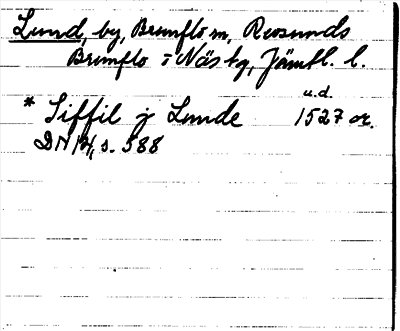 Lund, by, Brunflo m, Revsunds
Brunflo o Näs tg, Jämtl. l.
u.d.
* Siffil j Lunde 1527 or.
DN 14, s. 588